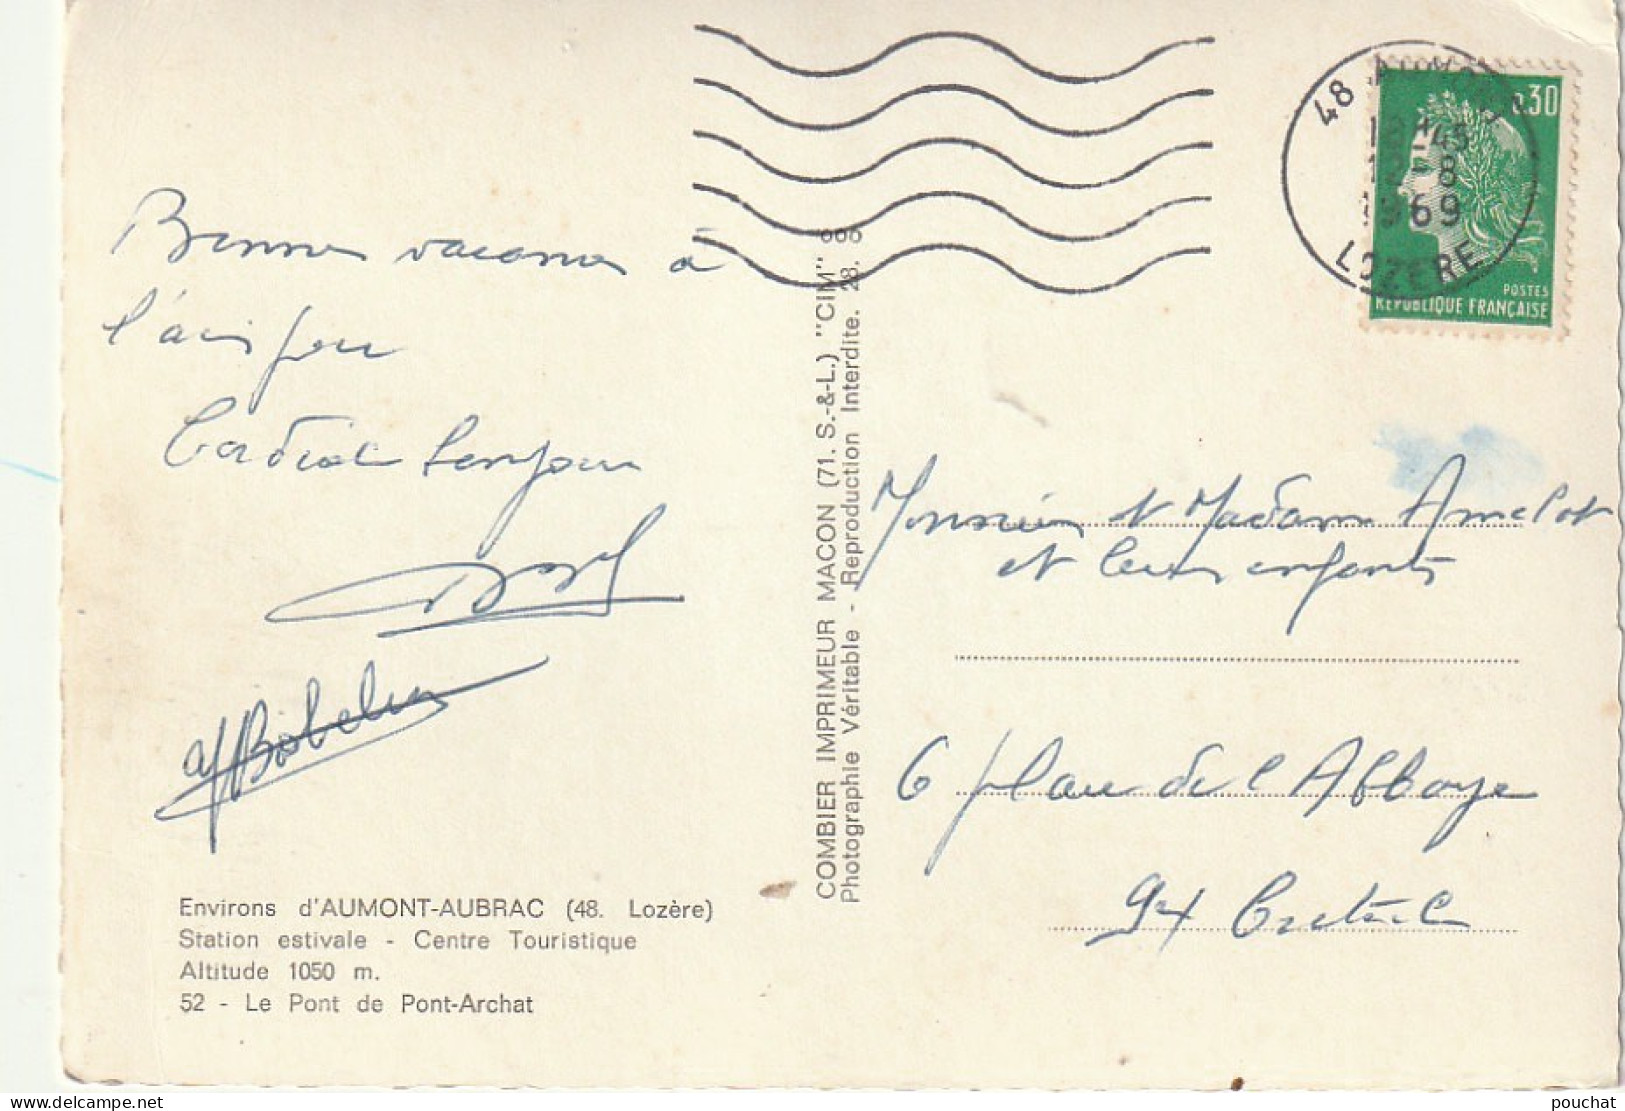 Bonnes vacances à
l'ani
Cordial bonjour
Monsieur et Madame Amelot
et leurs enfants
6 place de l'Abbaye
94 Creteil
Environs d'AUMONT-AUBRAC (48. Lozère)
Station estivale - Centre Touristique
Altitude 1050 m.
52 - Le Pont de Pont-Archat
COMBIER IMPRIMEUR MACON (71. S.-&-L.) "CIM"
Photographie Véritable - Reproduction Interdite. 28.
48 AUMONT
45
12-8
1969
LOZERE
0.30
POSTES
REPUBLIQUE FRANÇAISE
pouchat
www.delcampe.net